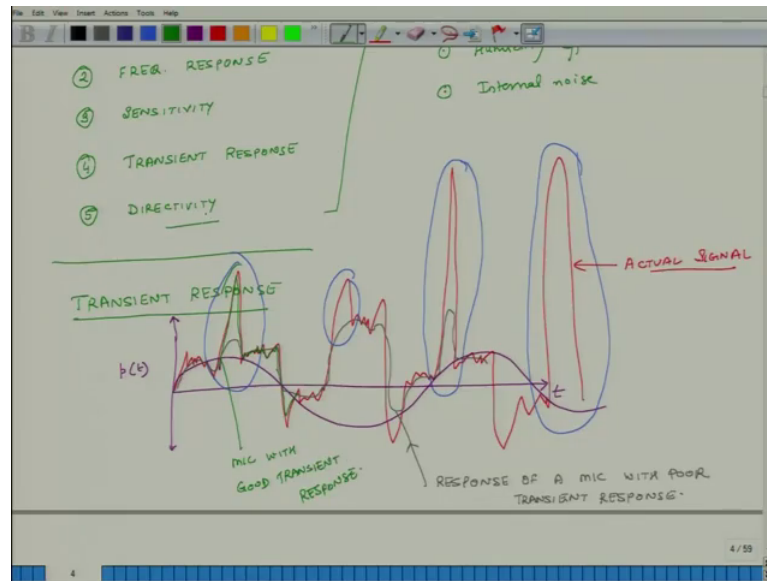 File Edit View Insert Actions Tools Help
B I
② FREQ. RESPONSE
③ SENSITIVITY
④ TRANSIENT RESPONSE
⑤ DIRECTIVITY
Internal noise
ACTUAL SIGNAL
TRANSIENT RESPONSE
p(t)
t
MIC WITH
GOOD TRANSIENT
RESPONSE.
RESPONSE OF A MIC WITH POOR
TRANSIENT RESPONSE.
4 / 59
4